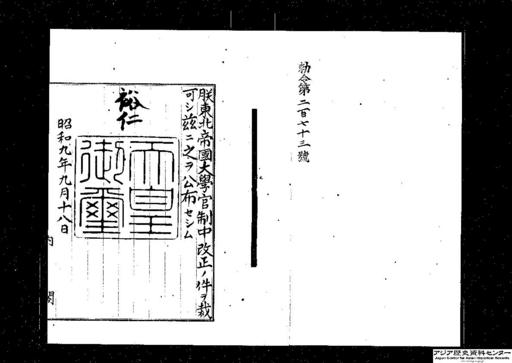 勅令第二百七十三號
朕東北帝國大學官制中改正ノ件ヲ裁
可シ茲ニ之ヲ公布セシム
裕仁
天皇
御璽
昭和九年九月十八日
内閣
アジア歴史資料センター
Japan Center for Asian Historical Records